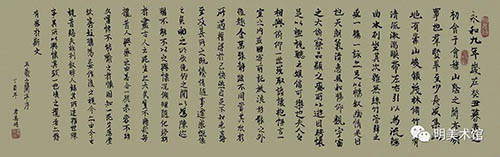 永和九年歲在癸丑暮春之
初會于會稽山陰之蘭亭脩禊
事也羣賢畢至少長咸集此
地有崇山峻領茂林脩竹又有
清流激湍暎帶左右引以為流觴
曲水列坐其次雖無絲竹管弦之
盛一觴一詠亦足以暢敘幽情是日
也天朗氣清惠風和暢仰觀宇宙
之大俯察品類之盛所以遊目騁懷
足以極視聽之娛信可樂也夫人之
相與俯仰一世或取諸懷抱悟言一
室之內或因寄所託放浪形骸之外
雖趣舍萬殊靜躁不同當其欣於
所遇暫得於己快然自足不知老之將
至及其所之既惓情隨事遷感慨係
之矣向之所欣俛仰之間以為陳迹
猶不能不以之興懷況脩短隨化終期
於盡古人云死生亦大矣豈不痛哉每
攬昔人興感之由若合一契未嘗不臨
文嗟悼不能喻之於懷固知一死生為虛
誕齊彭殤為妄作後之視今亦由今之
視昔悲夫故列敘時人錄其所述雖世殊
事異所以興懷其致一也後之攬者亦將
有感於斯文
王羲之蘭亭序
明美术馆